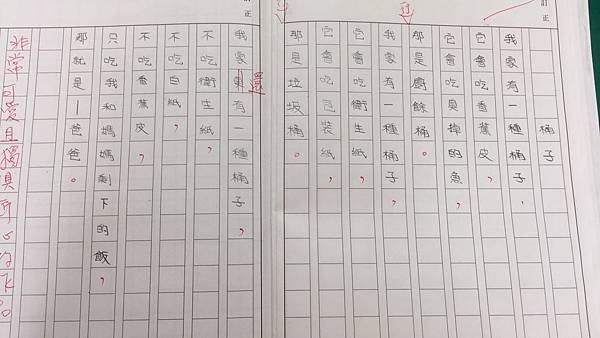 訂正
桶子
我家有一種桶子,
它會吃香蕉皮,
它會吃臭掉的魚,
那是廚餘桶。
我家有一種桶子,
它會吃衛生紙,
它會吃包裝紙,
那是垃圾桶。
訂正
我家還有一種桶子,
不吃衛生紙,
不吃白紙,
不吃香蕉皮,
只吃我和媽媽剩下的飯,
那就是—爸爸。
非常可愛且獨具匠心的